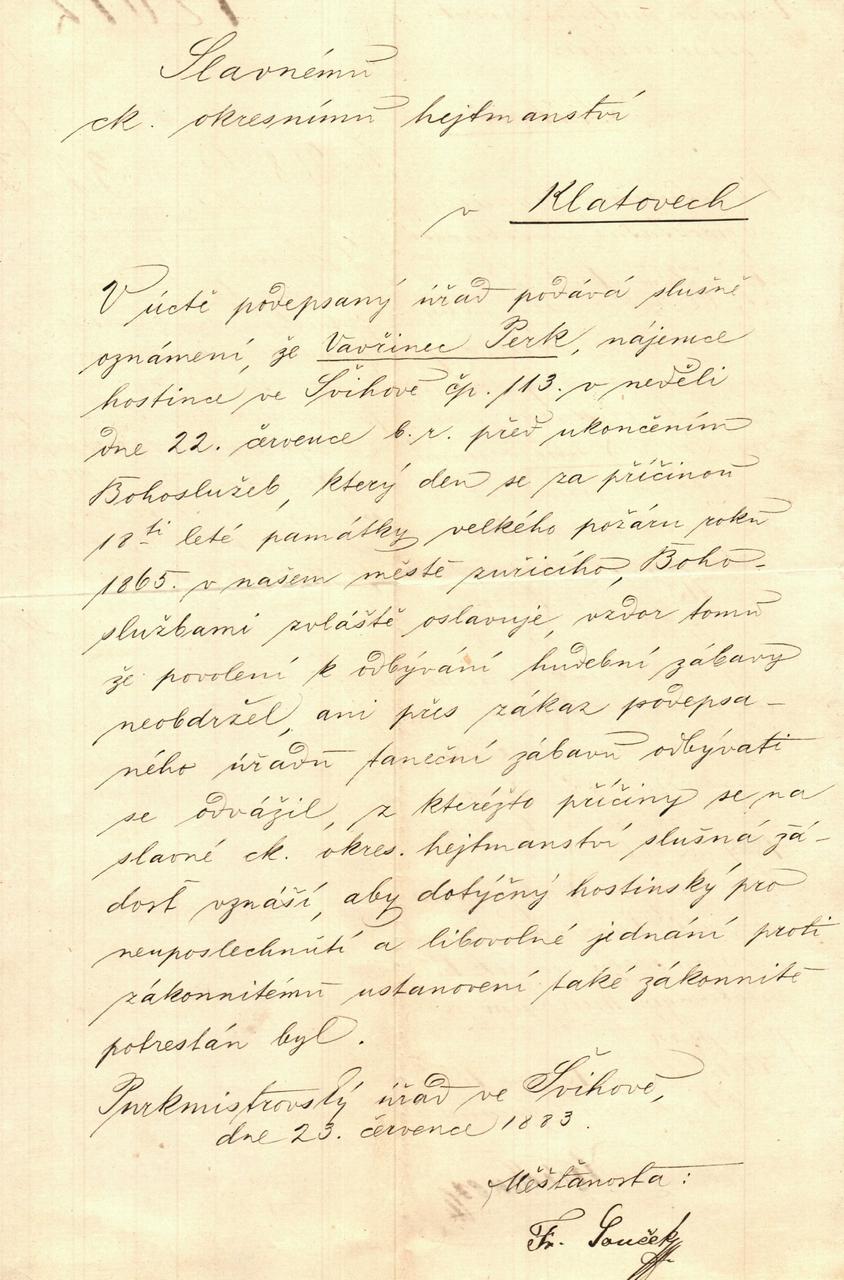 Slavnému
ck. okresnímu hejtmanství
v Klatovech
V úctě podepsaný úřad podává slušně
oznámení, že Vavřinec Perk, nájemce
hostince ve Švihově čp. 113. v neděli
dne 22. července b. r. před ukončením
Bohoslužeb, který den se za příčinou
18ti leté památky velkého požáru roku
1865. v našem městě zuřicího, Boho-
službami zvláště oslavuje, vzdor tomu
že povolení k odbývání hudební zábavy
neobdržel, ani přes zákaz podepsa-
ného úřadu taneční zábavu odbývati
se odvážil, z kteréžto příčiny se na
slavné ck. okres. hejtmanství slušná žá-
dost vznáší, aby dotýčný hostinský pro
neuposlechnutí a libovolné jednání proti
zákonnitému ustanovení také zákonnitě
potrestán byl.
Purkmistrovský úřad ve Švihově,
dne 23. července 1883.
Měšťanosta:
Fr. Souček